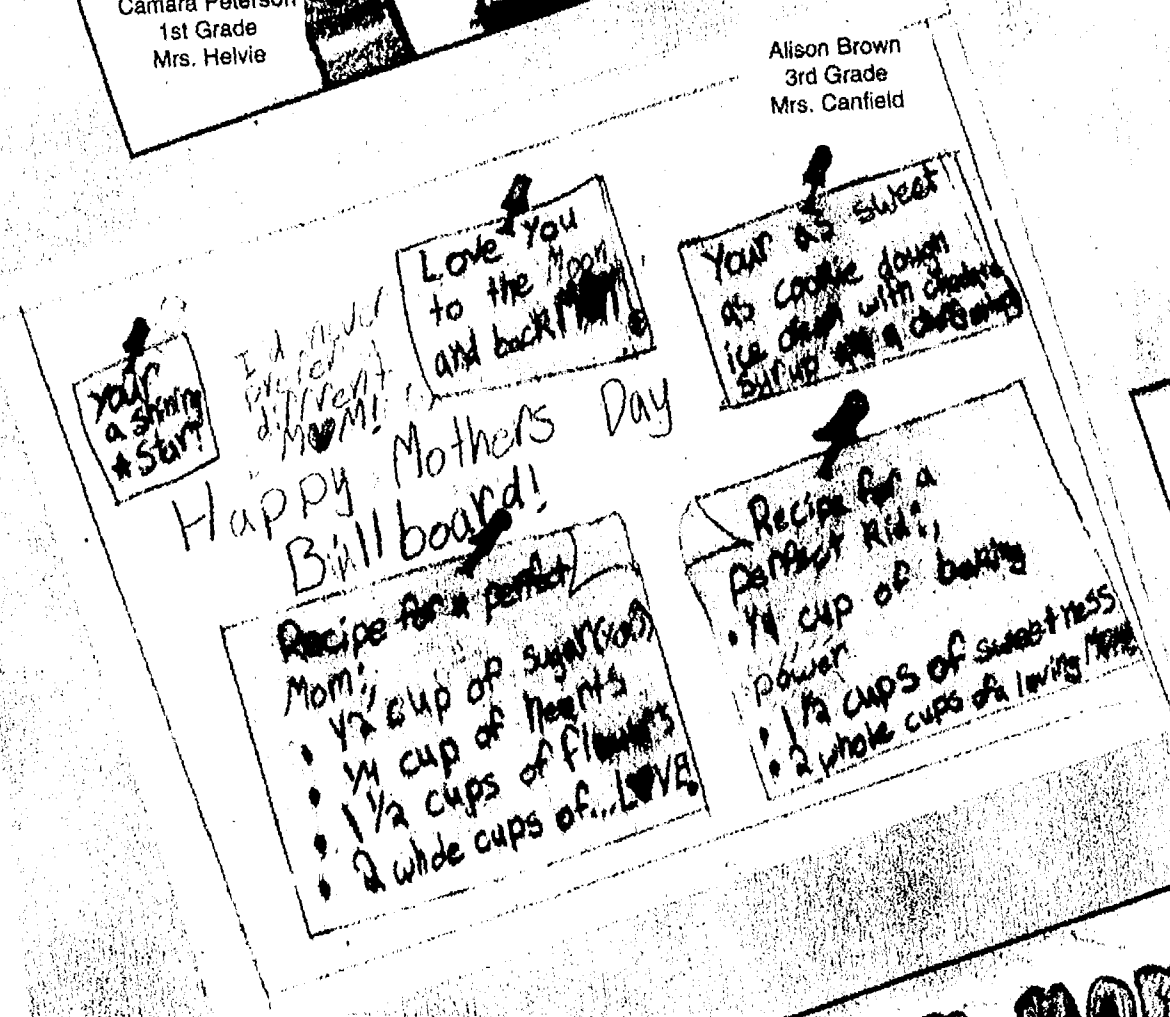 Camara Peterson
1st Grade
Mrs. Helvie
Alison Brown
3rd Grade
Mrs. Canfield
Your
a shining
★ Star!
I'd never
prefer
diffrent
M♥M!
Love You
to the Moon
and back
Your as sweet
as cookie dough
ice cream with
syrup
Happy Mothers Day
Billboard!
Recipe for a perfect
Mom:,
• 1/2 cup of sugar
• 1/4 cup of hearts
• 1 1/2 cups of flowers
• 2 whole cups of...L♥VE
Recipe for a
perfect Kid:,
• 1/4 cup of baking
power
• 1 1/2 cups of sweetness
• 2 whole cups of a loving